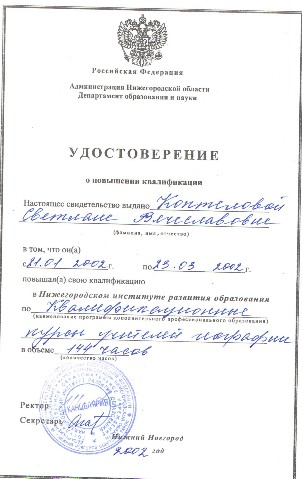 Российская Федерация
Администрация Нижегородской области
Департамент образования и науки
УДОСТОВЕРЕНИЕ
о повышении квалификации
Настоящее свидетельство выдано Коптеловой
Светлане Вячеславовне
(фамилия, имя, отчество)
в том, что он(а)
с 21.01 2002 г. по 23.03 2002 г.
повышал(а) свою квалификацию
в Нижегородском институте развития образования
по Квалификационные
(наименование программы дополнительного профессионального образования)
курсы учителей географии
в объеме 144 часов
(количество часов)
Ректор
КАНЦЕЛЯРИЯ
Секретарь
Нижний Новгород
2002 год